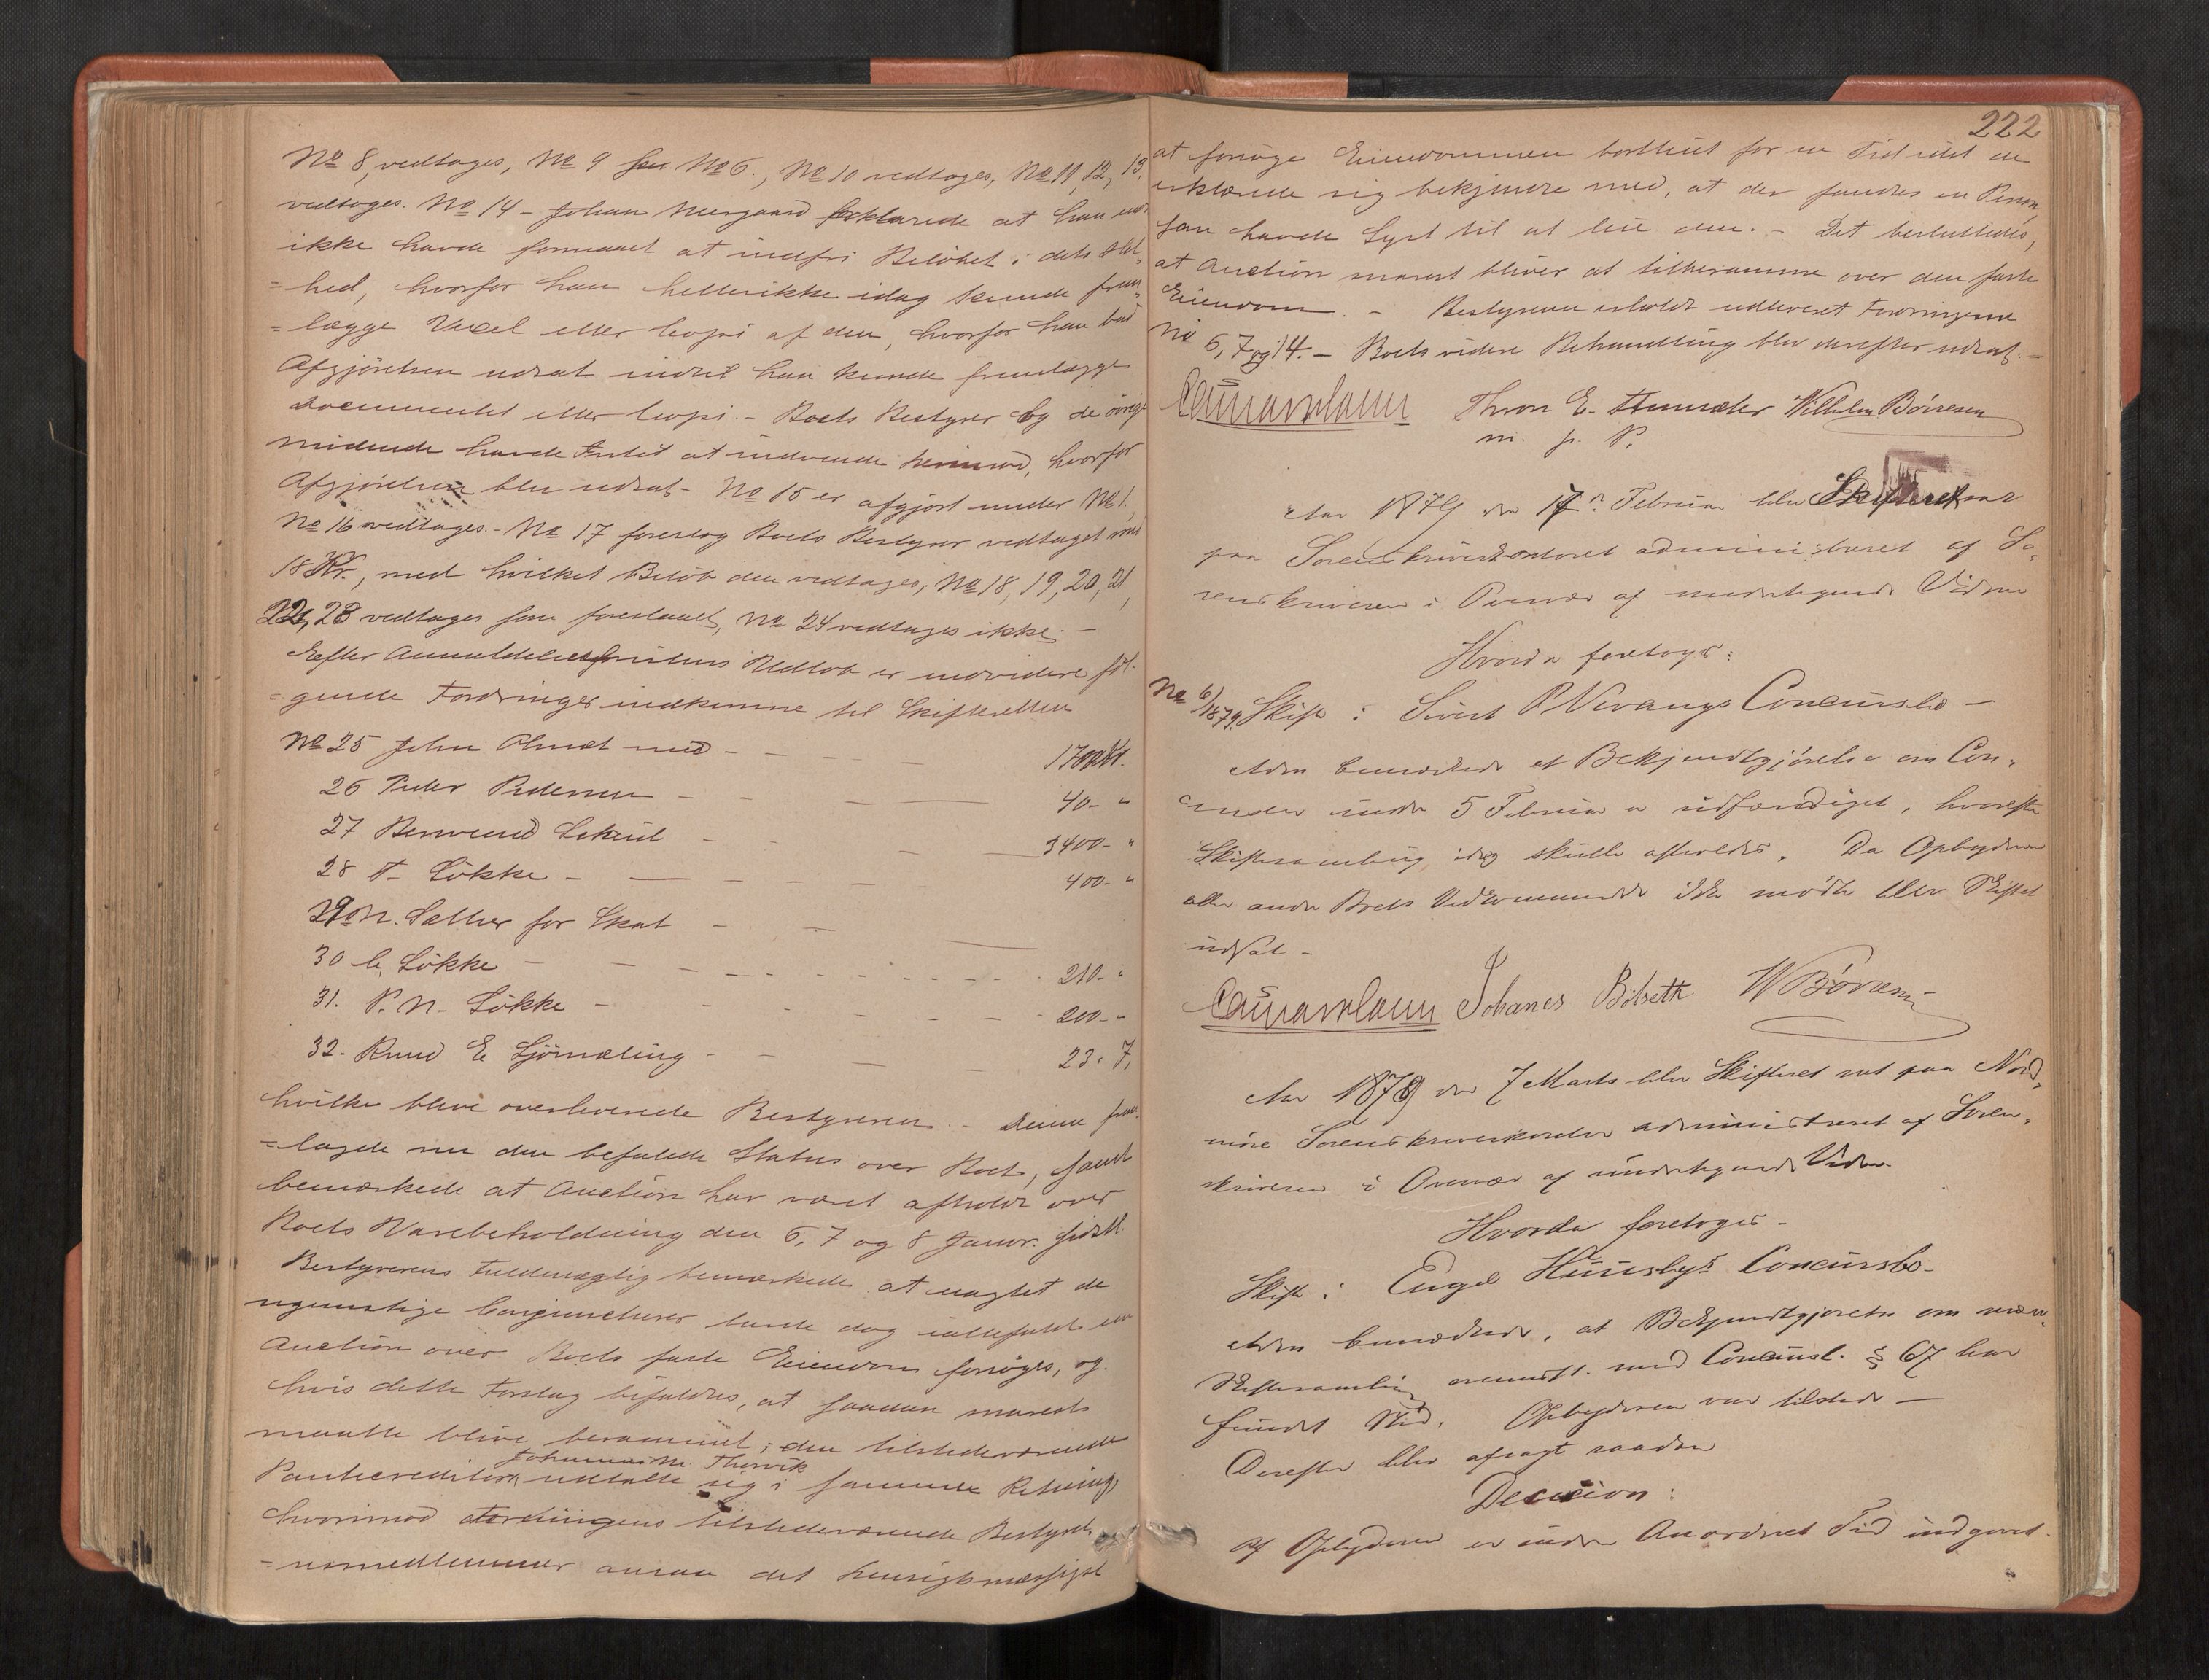 No 8, vedtages, No 9 som No 6., No 10 vedtages, No 11, 12, 13,
vedtages. No 14 - Johan Neergaard forklarede at han end
ikke havde formaaet at indfri Beløbet i dets Hel-
=hed, hvorfor han hellerikke idag kunde frem-
=lægge Vexel eller Copi af den, hvorfor han bad
Afgjørelsen udsat indtil han kunde fremlægge
Documentet eller Copi. - Boets Bestyrer og de øvrige
mødende havde Intet at indvende herimod, hvorfor
Afgjørelsen blev udsat - No 15 er afgjort under No 1.
No 16 vedtages. - No 17 foreslog Boets Bestyrer vedtaget med
18 Kr., med hvilket Beløb den vedtages, No 18, 19, 20, 21,
22, 23 vedtages som foreslaaet, No 24 vedtages ikke. -
Efter Anmeldelsesfristens Udløb er endvidere føl-
=gende Fordringer indkomne til Skifteretten
No 25 John Olsnæt med - - - - Kr.
26 Peder Pedersen - - - 40 - "
27 Bernvend - - 3400 - "
28 T. Løkke - - - - 400 - "
29 N. Sæther for Skat - -
30 C. Løkke - - - - 210 - "
31. P. N. Løkke - - - - 200 - "
32. Knud E. Sjømæling - - - 23. 7.
hvilke bleve overleverede Bestyreren. - Denne frem-
=lagde nu den befalede Status over Boet, samt
bemærkede at Auction har været afholdt over
Boets Varebeholdning den 6, 7 og 8 Januar sidstl.
Bestyrerens Fuldmægtig bemærkede at uagtet de
ugunstige Conjuncturer burde dog ialtfald en
Auction over Boets faste Eiendom forsøges, og
hvis dette Forslag bifaldes, at saadan snarest
maatte blive berammet; den tilstedeværende
Johannes Thorvik
Pantecreditor udtalte sig i samme Retning,
hvorimod tilstedeværende Bestyrel-
=sesmedlemmer ansaa det hensigtsmæssigst
222
at forsøge Eiendommen bortleiet for en Tid idet de
erklærede sig bekjendte med, at der fandtes en Person,
som havde Lyst til at leie den. - Det besluttedes,
at Auction snarest bliver at tilberamme over den faste
Eiendom. - Bestyreren erholdt udleveret Fordringerne
No 6, 7 og 14. - Boets videre Behandling blev derefter udsat. -
Thron E. Wilhelm Børresen
m. p. P.
Aar 1879 den 17n Februar blev Skifteret sat
paa Sorenskriverkontoret administreret af So-
renskriveren i Overvær af undertegnede Vidner
Hvorda foretoges:
No 6/1879. Skifte i Sivert P. Nervangs Concursbo -
Adm bemærkede at Bekjendtgjørelse om Con-
under 5 Februar er udfærdiget, hvorefter
Skiftesamling idag skulde afholdes. Da Opbyderen
eller andre Boets Vedkommende ikke mødte blev Skiftet
udsat -
Johanes Bolseth W Børresen
Aar 1879 den 7 Marts blev Skifteret sat paa Nord-
møre Sorenskriverkontor administreret af Soren-
skriveren i Overvær af undertegnede Vidner
Hvorda foretoges -
Skifte i Engel Huusbys Concursbo -
Adm bemærkede, at Bekjendtgjørelse om
Skiftesamling overensst. med Concursl. § 67 har
fundet Sted. Opbyderen var tilstede -
Derefter blev afsagt saadan
Decision:
Af Opbyderen er inden Anordnet Tid indgivet